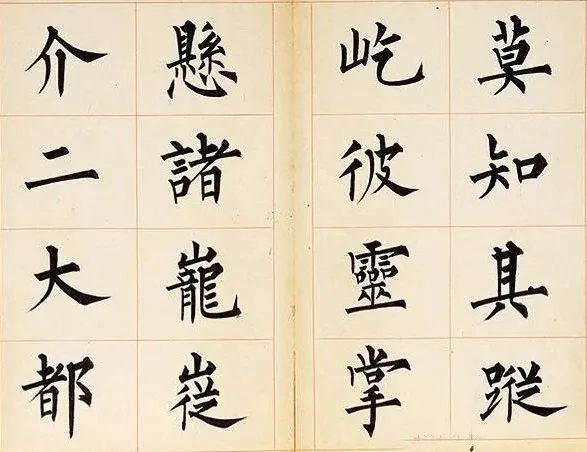 莫知其蹤
屹彼靈掌
懸諸巃嵷
介二大都